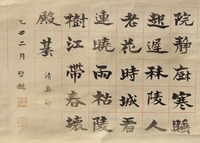 院靜廚寒睡
起遲秣陵人
老花時城看
連曉雨枯陵
樹江帶春壞
殿
二月